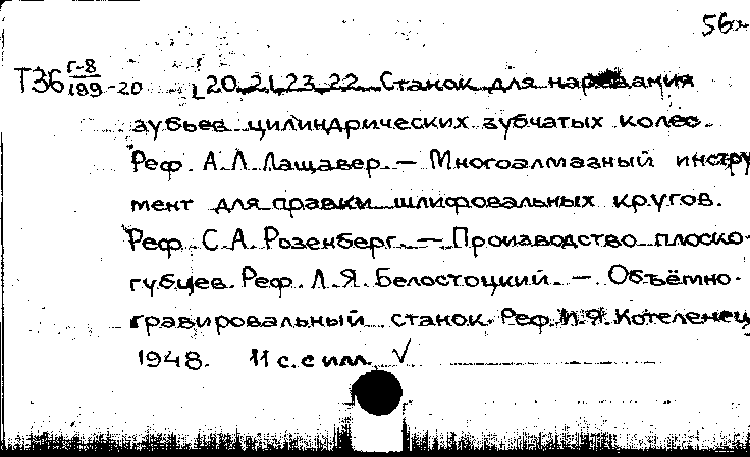 56
Т36 Г-8/189-20 [20. 21. 23. 22. Станок для нарезания
зубьев цилиндрических зубчатых колес.
Реф. А. Л. Лащавер. — Многоалмазный инстру
мент для правки шлифовальных кругов.
Реф. С. А. Розенберг. — Производство плоско-
губцев. Реф. Л. Я. Белостоцкий. — Объёмно-
гравировальный станок. Реф. И. Я. Котеленец
1948. 11 с. с илл. √